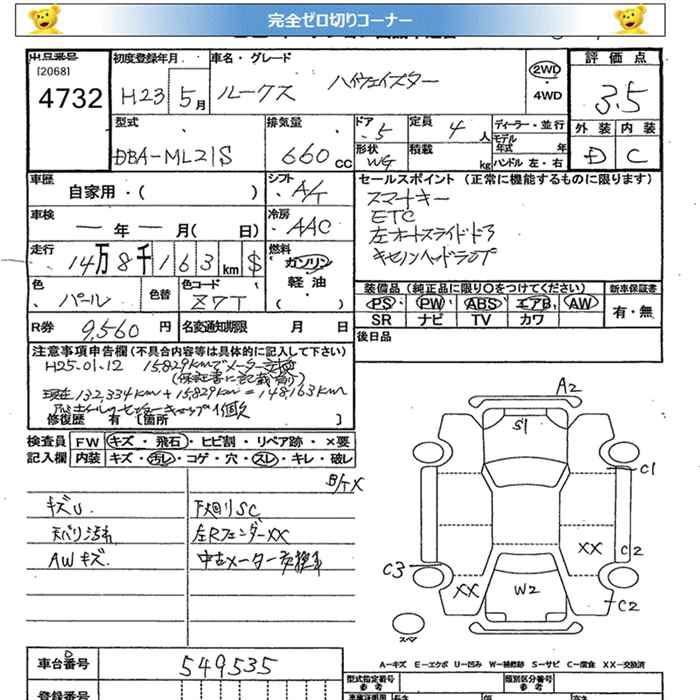 完全ゼロ切りコーナー
出品番号
[2068]
4732
初度登録年月
H23 5月
車名・グレード
ルークス ハイウェイスター
2WD
・
4WD
評価点
3.5
外装 内装
D C
型式
DBA-ML21S
排気量
660cc
ドア
5
定員 4人
形状
WG
積載 kg
ディーラー・並行
モデル
年式 年
ハンドル 左・右
車歴
自家用・( )
シフト
A/T
車検
ー 年 ー 月( 日)
冷房
AAC
セールスポイント (正常に機能するものに限ります)
スマートキー
ETC
左オートスライドドア
キセノンヘッドランプ
走行
14万8千163km $
燃料
ガソリン
軽油
( )
色
パール
色替
色コード
Z7T
装備品 (純正品に限り○をつけてください)
PS PW ABS エアB AW
SR ナビ TV カワ
新車保証書
有・無
R券 9,560円
名変通知期限 月 日
後日品
注意事項申告欄 (不具合内容等は具体的に記入して下さい)
H25.01.12 15829kmでメーター交換
(保証書に記載有)
現在132,334km+15,829km=148,163km
修復歴 有 [箇所 ]
検査員
記入欄
FW キズ・飛石・ヒビ割・リペア跡・×要
内装 キズ・汚レ・コゲ・穴・スレ・キレ・破レ
キズU
天バリ汚れ
AWキズ
下廻りSC
左RフェンダーXX
中古メーター交換車
A2
S1
C1
XX
C2
C3
XX
W2
C2
スペア
A-キズ E-エクボ U-凹み W-補修跡 S-サビ C-腐食 XX-交換済
車台番号
549535
登録番号
型式指定番号
参考
類別区分番号
参考